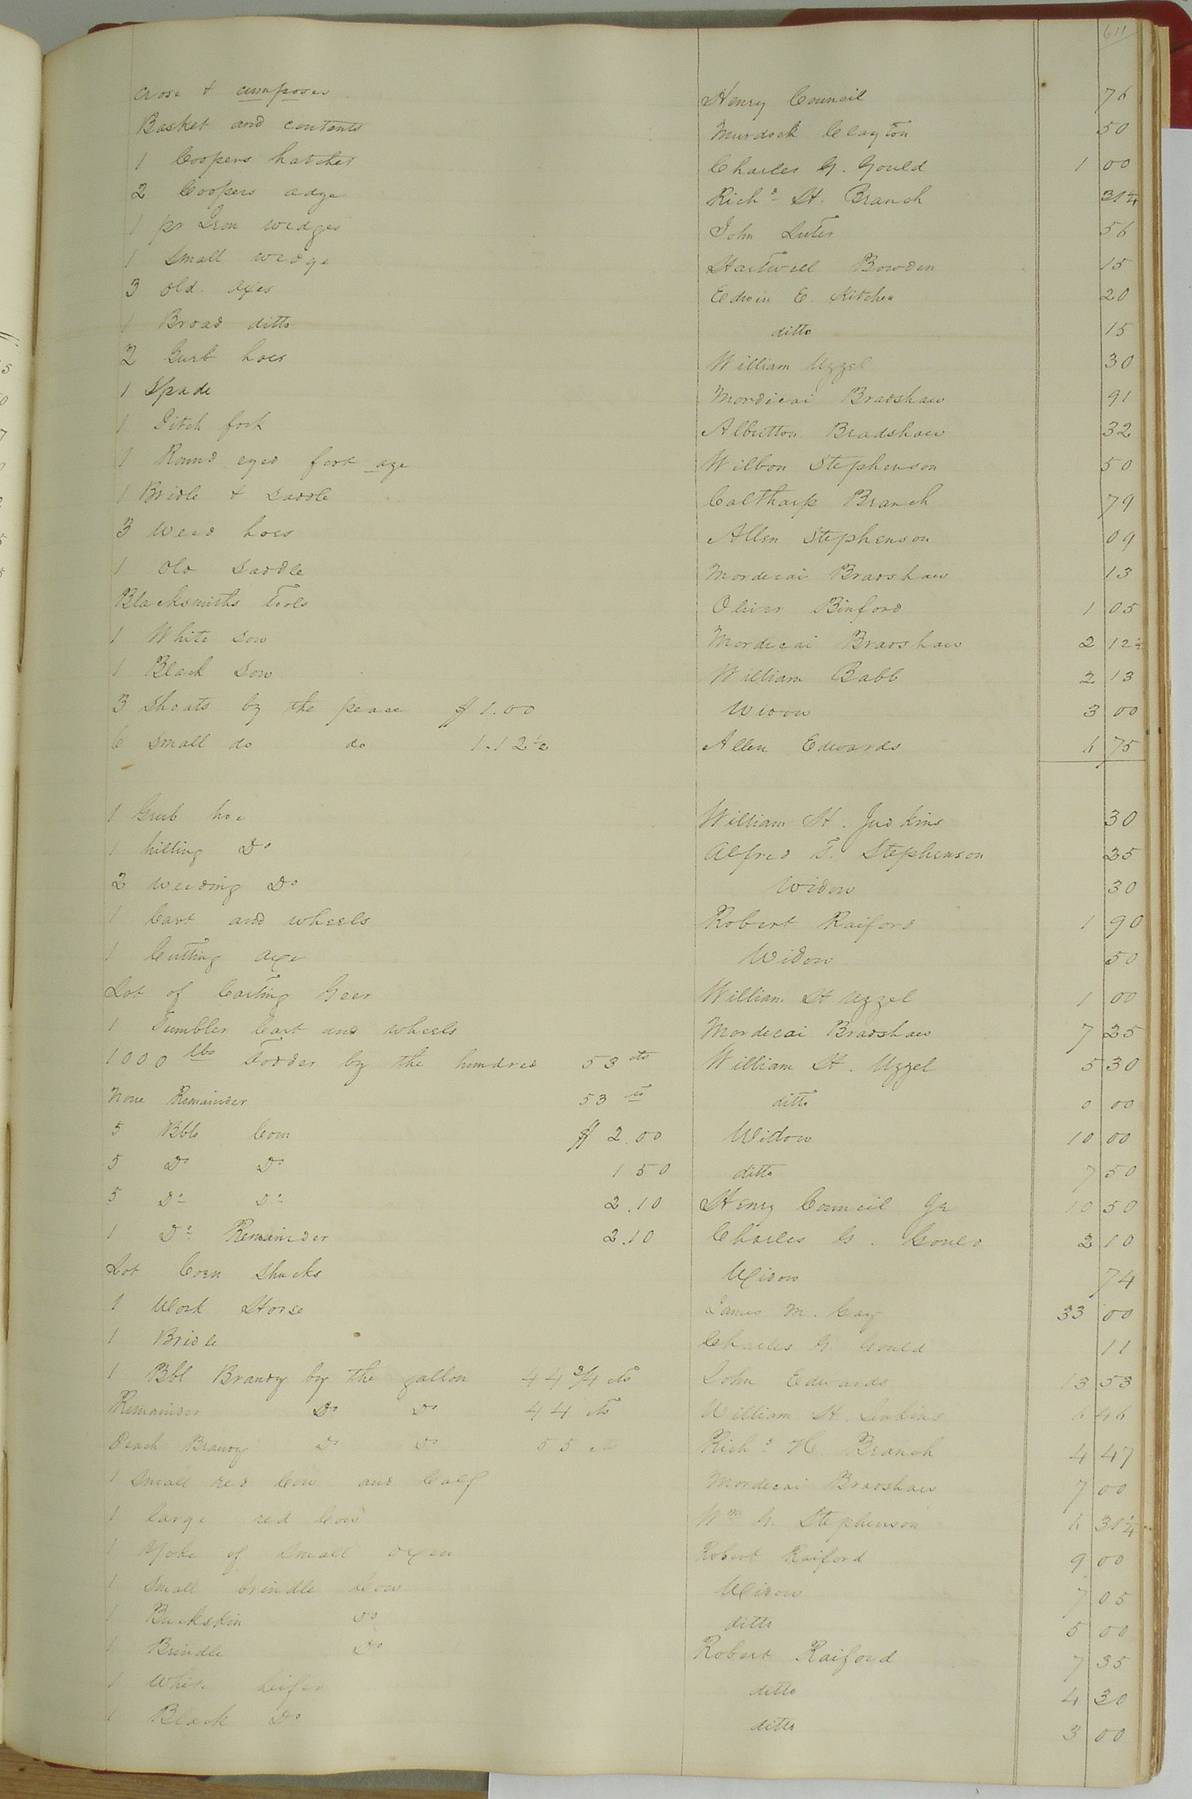 611
Crose & compases Henry Council 76
Basket and contents Murdock Clayton 50
1 Coopers hatchet Charles G. Gould 1 00
2 Coopers adze Richd H. Branch 31¼
1 pr Iron wedges John Luter 56
1 Small wedge Hartwell Bowden 15
3 Old Axes Edwin E. Kitchen 20
1 Broad ditto ditto 15
2 Gurb hoes William Uzzel 30
1 Spade Mordicai Bradshaw 91
1 Pitch fork Albutton Bradshaw 32
1 Round eyed foot aze Wilbon Stephenson 50
1 Bridle & Saddle Calthorp Branch 79
3 Weed hoes Allen Stephenson 09
1 Old Saddle Mordecai Bradshaw 13
Blacksmiths Tools Oliver Binford 1 05
1 White Sow Mordecai Bradshaw 2 12½
1 Black Sow William Babb 2 13
3 Shoats by the peace $1.00 Widow 3 00
6 Small do do 1.12½ Allen Edwards 6 75
1 Grub hoe William H. Judkins 30
1 hilling Do Alfred T. Stephenson 25
2 Weeding Do Widow 30
1 Cart and wheels Robert Raiford 1 90
1 Cutting axe Widow 50
Lot of Carting Geer William H Uzzel 1 00
1 Tumbler Cart and wheels Mordecai Bradshaw 7 25
1000 lbs Fodder by the hundred 53 cts William H. Uzzel 5 30
None Remainder 53 cts ditto 0 00
5 Bbls Corn $2.00 Widow 10 00
5 Do Do 1 50 ditto 7 50
5 Do Do 2.10 Henry Council Jr 10 50
1 Do Remainder 2.10 Charles G. Gould 2 10
Lot Corn Shucks Widow 74
1 Work Horse James M. Cay 33 00
1 Bridle Charles G. Gould 11
1 Bbl Brandy by the gallon 44¾ cts John Edwards 13 53
Remainder Do Do 44 cts William H. Judkins 6 46
Peach Brandy Do Do 55 cts Richd H. Branch 4 47
1 Small red Cow and Calf Mordecai Bradshaw 7 00
1 large red Cow Wm N. Stephenson 6 31¼
1 Yoke of Small oxen Robert Raiford 9 00
1 Small brindle Cow Widow 7 05
1 Buckskin Do ditto 5 00
1 Brindle Do Robert Raiford 7 35
1 White heifer ditto 4 30
1 Black Do ditto 3 00